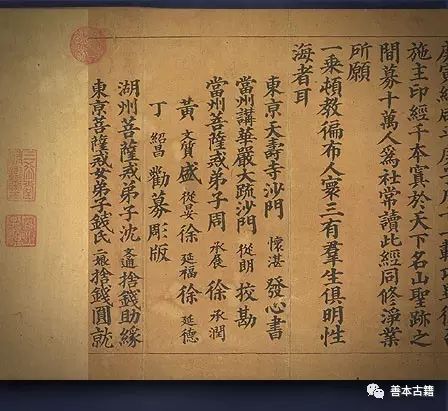 施主印經千本寘於天下名山聖跡之
間募十萬人爲社常讀此經同修淨業
所願
一乘頓教徧布人寰三有羣生俱明性
海者耳
東京天壽寺沙門 懷湛 發心書
當州講華嚴大疏沙門 從朗 挍勘
當州菩薩戒弟子周 承展 徐 承潤
黃 文質 盛 從晏 徐 延福 徐 延德
丁 紹昌 勸募彫版
湖州菩薩戒弟子沈 文通 捨錢助緣
東京菩薩戒女弟子錢氏 二娘 捨錢圓就
善本古籍